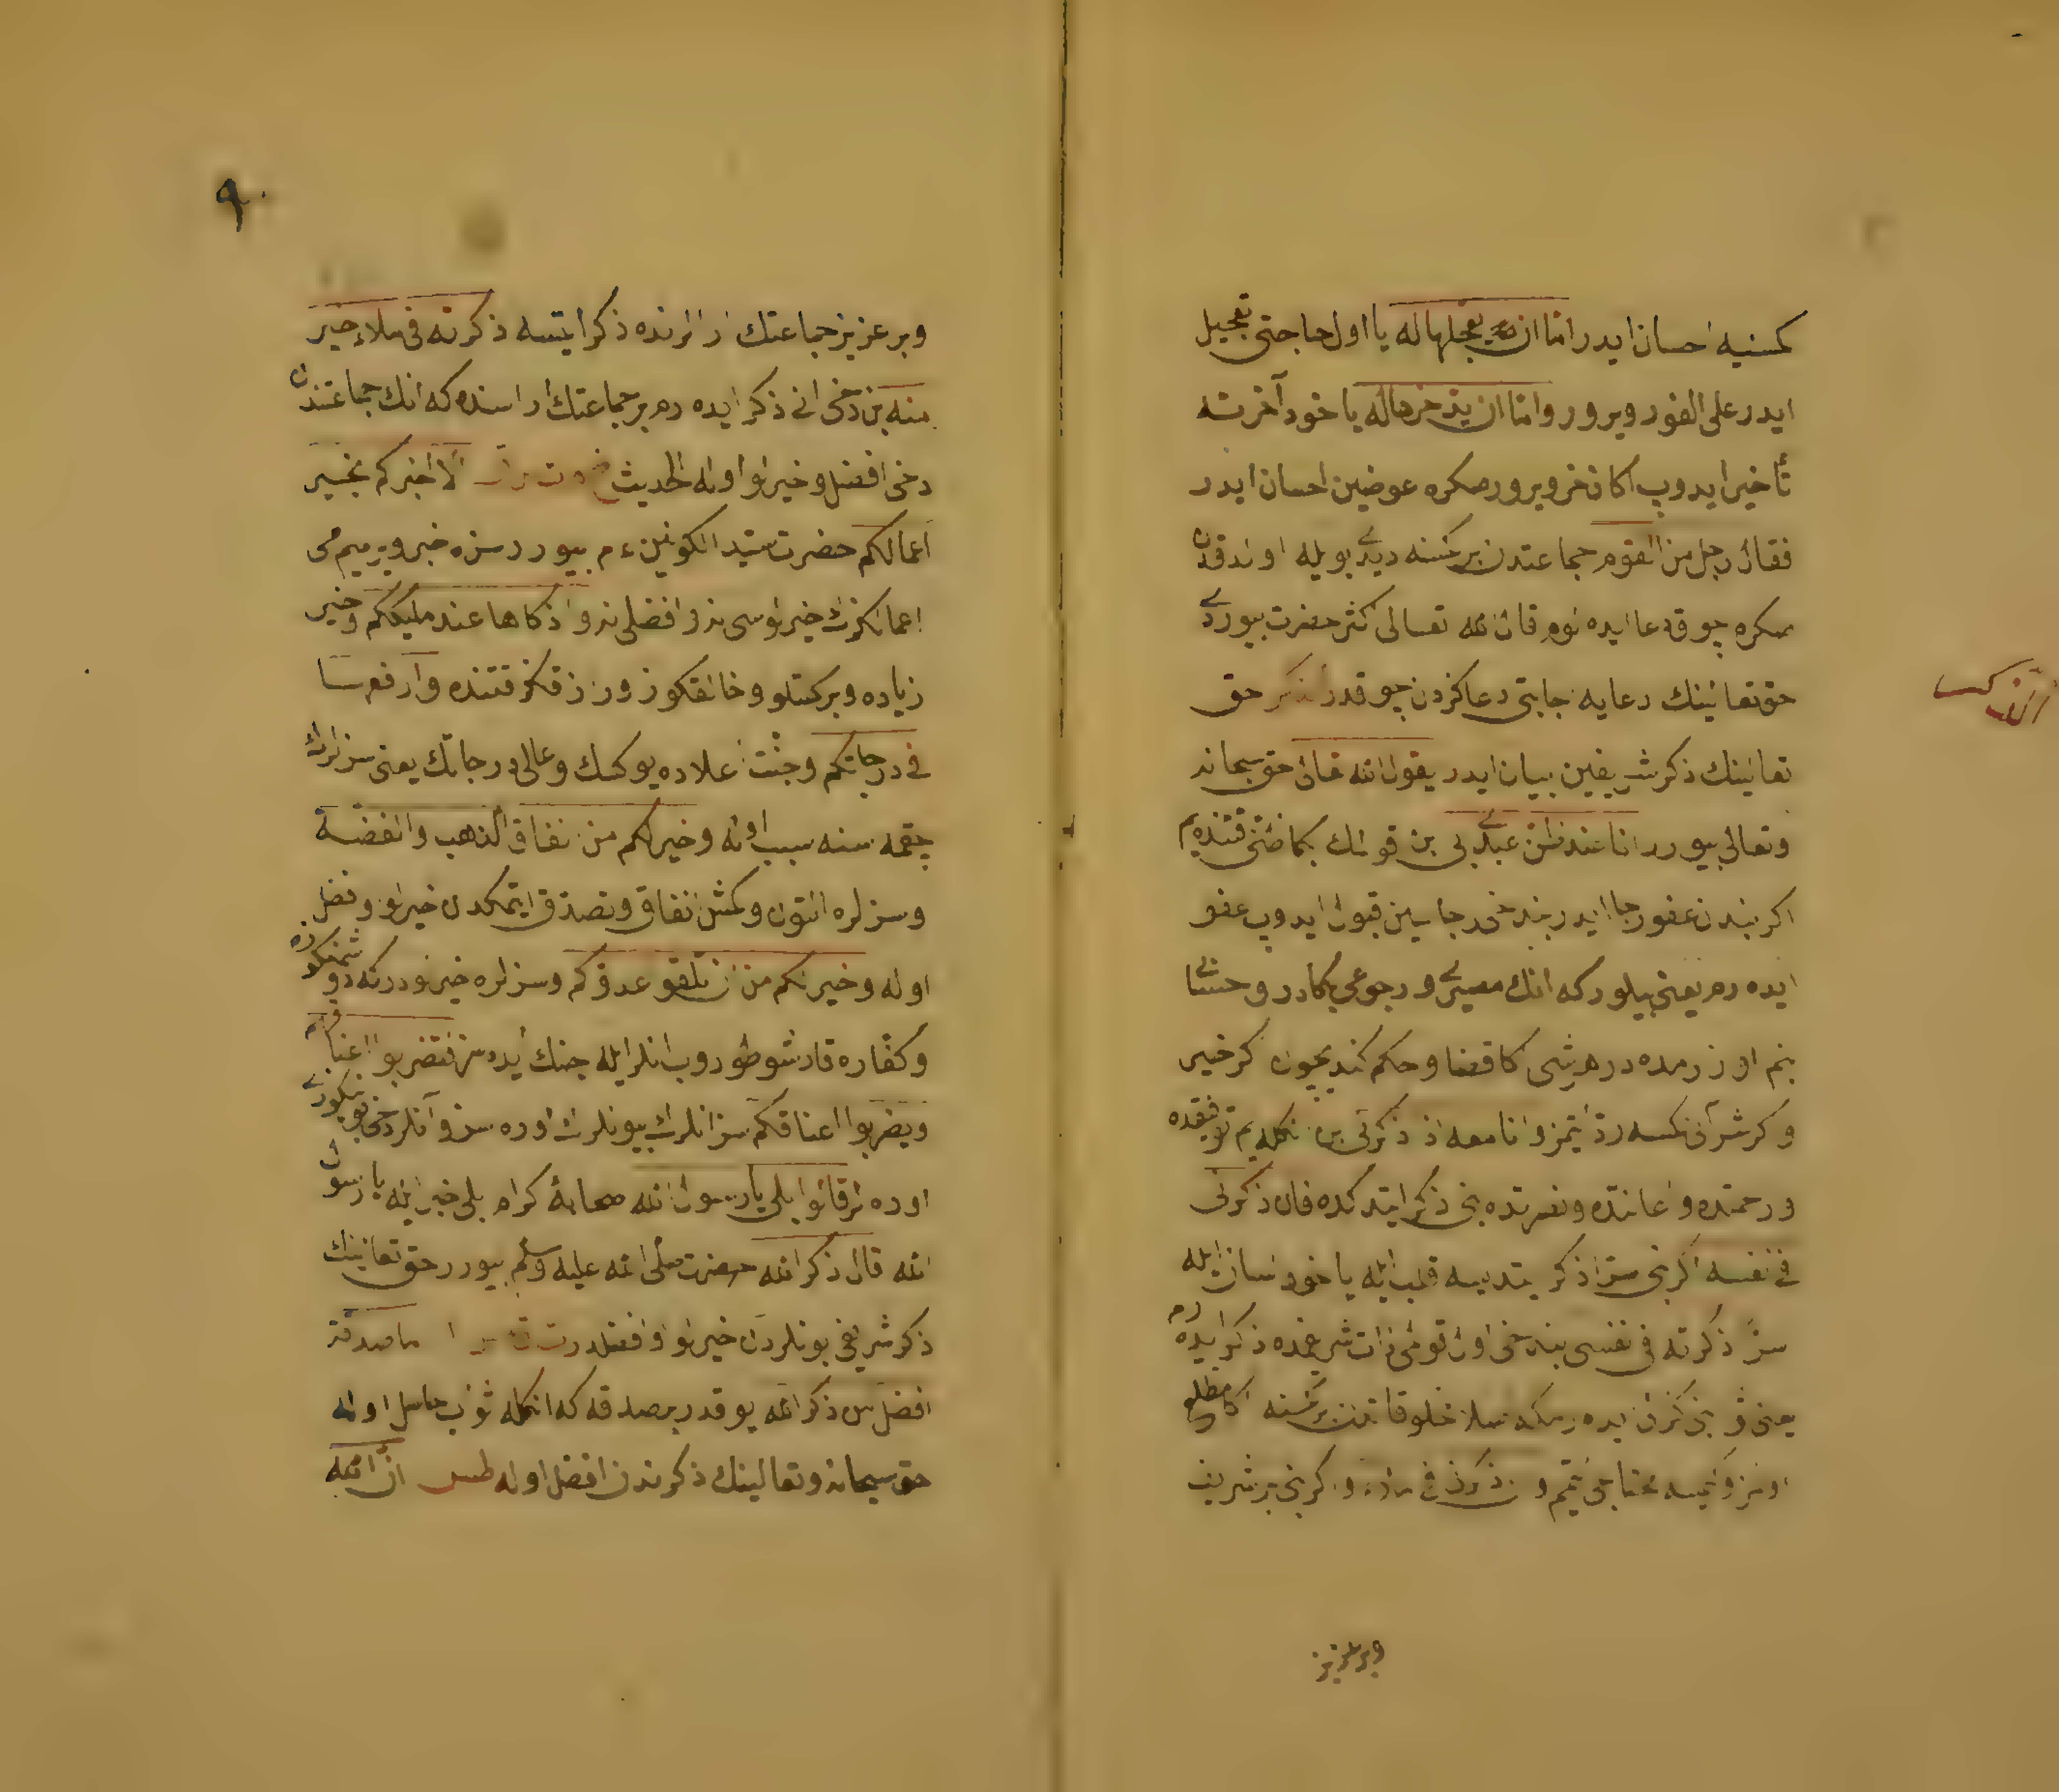 كمسنیه احسان ایدر اما ان یعجلها له یا اول حاجتی تعجیل
ایدر علی الفور ویرور واما ان یدخرها له یا خود آخرته
تأخیر ایدوب اكا ذخر ویرور صكره عوضین احسان ایدر
فقال رجل من القوم جماعتدن بر كمسنه دیدی بویله اولدقدن
صكره چوق دعا ایده لوم قال الله تعالی اكثر حضرت بیوردی
حق تعالینك دعایه اجابتی دعاكزدن چوقدر الذكر حق
تعالینك ذكر شریفین بیان ایدر یقول الله تعالی حق سبحانه
وتعالی بیورر انا عند ظن عبدی بی بن قولمك بكا ظنی قتنده یم
اكر بندن عفو رجا ایدر بن دخی رجاسین قبول ایدوب عفو
ایده رم یعنی بیلور كه انك مصیری ورجوعی بكادر وحسابی
بنم اوزرمده در هر شی كا قضا وحكم كندیچون اكر خیر
واكر شر آنی كمسه رد ایتمز وانا معه اذا ذكرنی بن انكله یم توفیقده
ورحمتده واعانتده ونصرتده بنی ذكر ایتدكده فان ذكرنی
فی نفسه اكر بنی سرا ذكر ایتدیسه قلب ایله یا خود لسان ایله
سرًا ذكرته فی نفسی بن دخی اول قولمی ذات شریفمده ذكر ایده رم
یعنی ثوابنی ایده رم كه اصلا مخلوقاتدن بر كمسنه اكا مطلع
اولمز وكیمسه یه محتاج ایتمم وان ذكرنی فی ملاء واكر بنی بر شریف
وبر عزیز
الذكر
٩٠
وبر عزیز جماعتك ارالرنده ذكر ایتسه ذكرته فی ملاء خیر
منه بن دخی انی ذكر ایده رم بر جماعتك اراسنده كه انك جماعتندن
دخی افضل وخیرلو اوله الحدیث الا اخبركم بخیر
اعمالكم حضرت سید الكونین ع م بیورر سزه خبر ویریم می
اعمالكزك خیرلوسی ندر وافضلی ندر وازكاها عند ملیككم وخیر
زیاده وبركتلو وخالقكوز ورازقكز قتنده وارفعها
فی درجاتكم وجنت اعلاده یوكسك وعالی درجاتك یعنی سزلرك
چقمه سنه سبب اوله وخیر لكم من انفاق الذهب والفضة
وسزلره التون وكمش انفاق وتصدق ایتمكدن خیرلو وفضل
اوله وخیر لكم من ان تلقوا عدوكم وسزلره خیرلودر كه دشمنكوزه
وكفاره قارشو طوروب انلر ایله جنك ایده سز فتضربوا اعناقهم
ویضربوا اعناقكم سز انلرك بیونلرن اوره سز وآنلر دخی بوینكوزی
اوره لر قالوا بلی یا رسول الله صحابهٔ كرام بلی خبر ایله یا رسول
الله قال ذكر الله حضرت صلی الله علیه وسلم بیورر حق تعالینك
ذكر شریفی بونلردن خیرلو وافضلدر ما صدقة
افضل من ذكر الله یوقدر بر صدقه كه انكله ثواب حاصل اوله
حق سبحانه وتعالینك ذكرندن افضل اوله طس ان الله